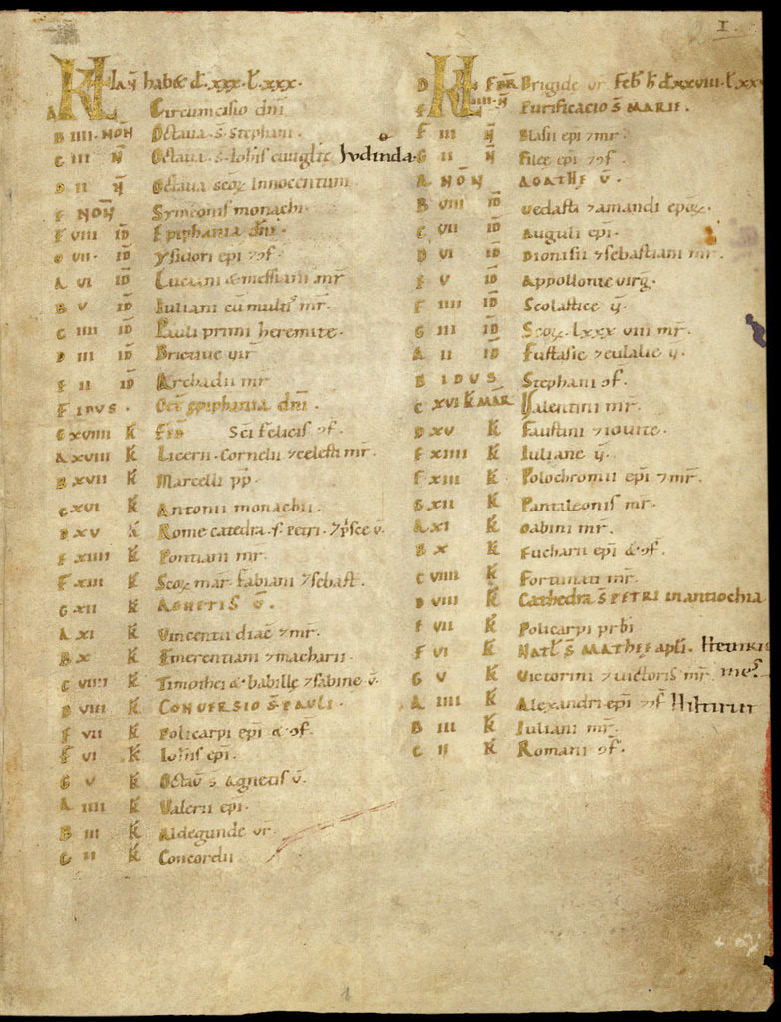 I.
KL Iañ habet d. xxx. l. xxx.
A Circumcisio dñi
B IIII. NOÑ Octaua. s. stephani.
C III Ñ Octaua. s. Iohis euuglte Judinda.
D II Ñ Octaua scoꝝ Innocentum
E NOÑ Symeonis monachi.
F VIII ID Epiphania dñi.
G VII. ID ysidori epi ⁊ ɔf.
A VI ID Luciani & messiani mr
B V ID Iuliani cū multis mr.
C IIII ID Pauli primi heremite.
D III ID
E II ID Archadii mr
F IDVS. Oct epiphania dñi.
G XVIIII K FEB Sci felicis ɔf.
A XVIII K Licerii. Cornelii ⁊ celesti mr.
B XVII K Marcelli pp.
C XVI K Antonii monachi.
D XV K Rome catedra. s. Petri. ⁊ p̃sce v̄.
E XIIII K Pontiani mr.
F XIII K Scoꝝ mar. fabiani ⁊ sebast.
G XII K AGNETIS V̄.
A XI K Vincentii diac̄ ⁊ mr.
B X K Emerentiani ⁊ macharii.
C VIIII K Timothei & babille ⁊ sabine v̄.
D VIII K CONVERSIO S̄ PAVLI.
E VII K Policarpi epi & ɔf.
F VI K Iohis epi.
G V K Octav̄ s. Agnetis v̄.
A IIII K Valerii epi.
B III K Aldegunde vr̄.
C II K Concordii
D KL FEBR Brigide vr̄ Feb̄ h̄ d xxviii. l. xxx
E IIII Ñ PURIFICACIO S̄ MARIE.
F III Ñ Blasii epi ⁊ mr.
G II Ñ Filee epi ⁊ ɔf.
A NOÑ AGATHE V̄.
B VIII ID Vedasti ⁊ amandi epoꝝ.
C VII ID Auguli epi.
D VI ID Dionisii ⁊ sebastiani mr.
E V ID Appollonie virg̃.
F IIII ID Scolastice v̄.
G III ID Scoꝝ. lxxx viii mr.
A II ID Eustasie ⁊ eulalie v̄.
B IDVS Stephani ɔf.
C XVI K MAR Valentini mr.
D XV K Faustini ⁊ iouite.
E XIIII K Iuliane v̄.
F XIII K Polochronii epi ⁊ mr.
G XII K Pantaleonis mr.
A XI K Gabini mr.
B X K Eucharii epi & ɔf.
C VIIII K Fortunati mr.
D VIII K Cathedra S̄ PETRI in antiochia
E VII K Policarpi prbi
F VI K NATL S̄ MATHIE apli.
G V K Victorini ⁊ uictoris mr
A IIII K Alexandri epi ⁊ ɔf
B III K Iuliani mr.
C II K Romani ɔf.
1